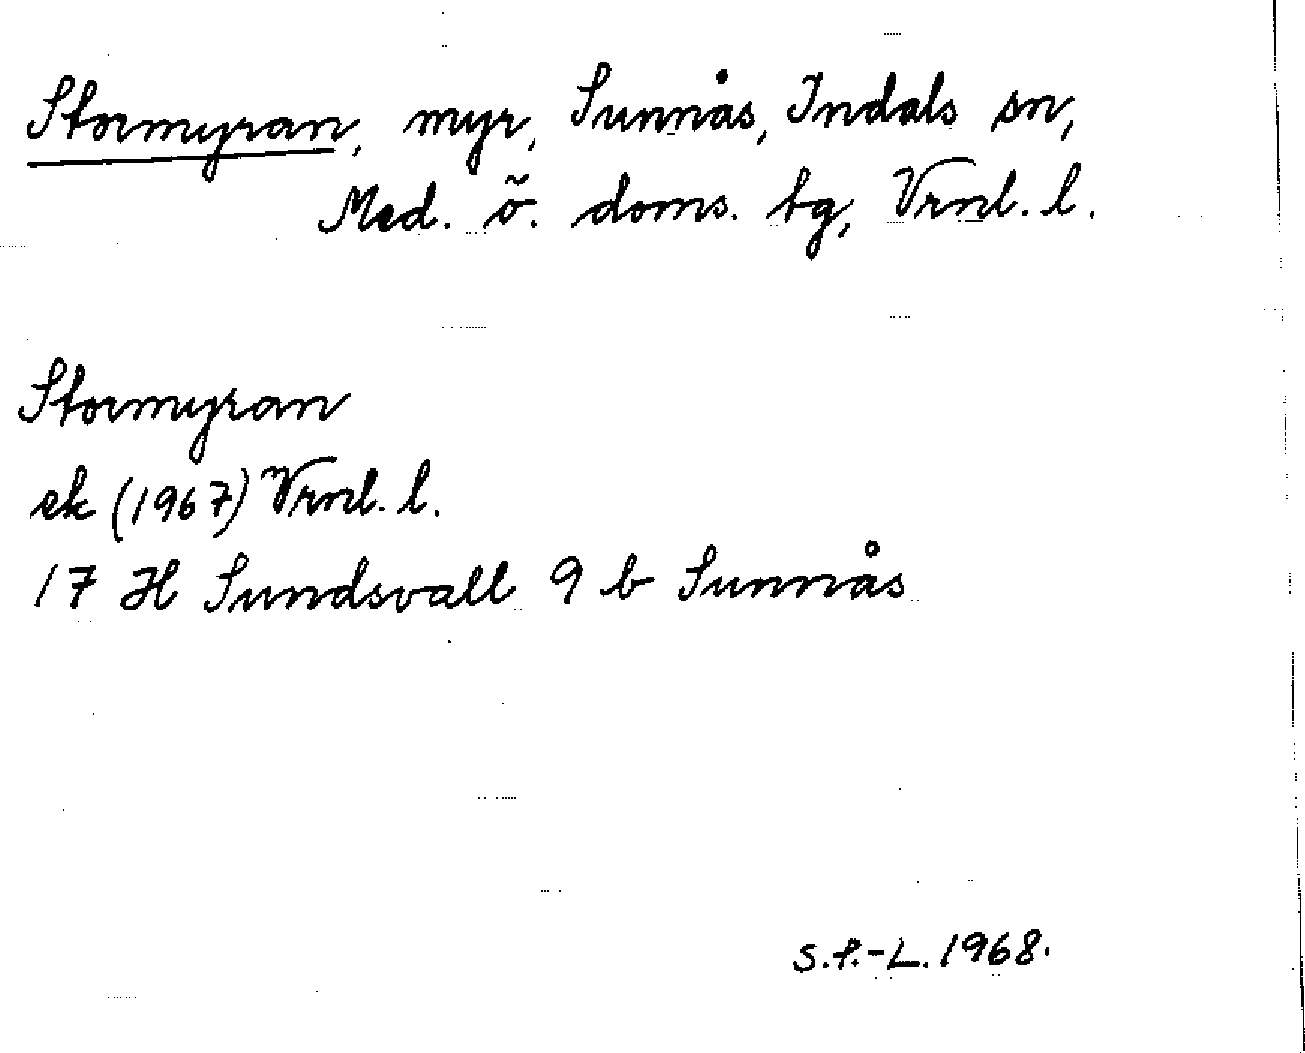 Stormyran, myr, Sunnås, Indals sn,
Med. ö. doms. tg, Vrnl. l.
Stormyran
ek (1967) Vrnl. l.
17 H Sundsvall 9 b Sunnås
S.P.-L. 1968.